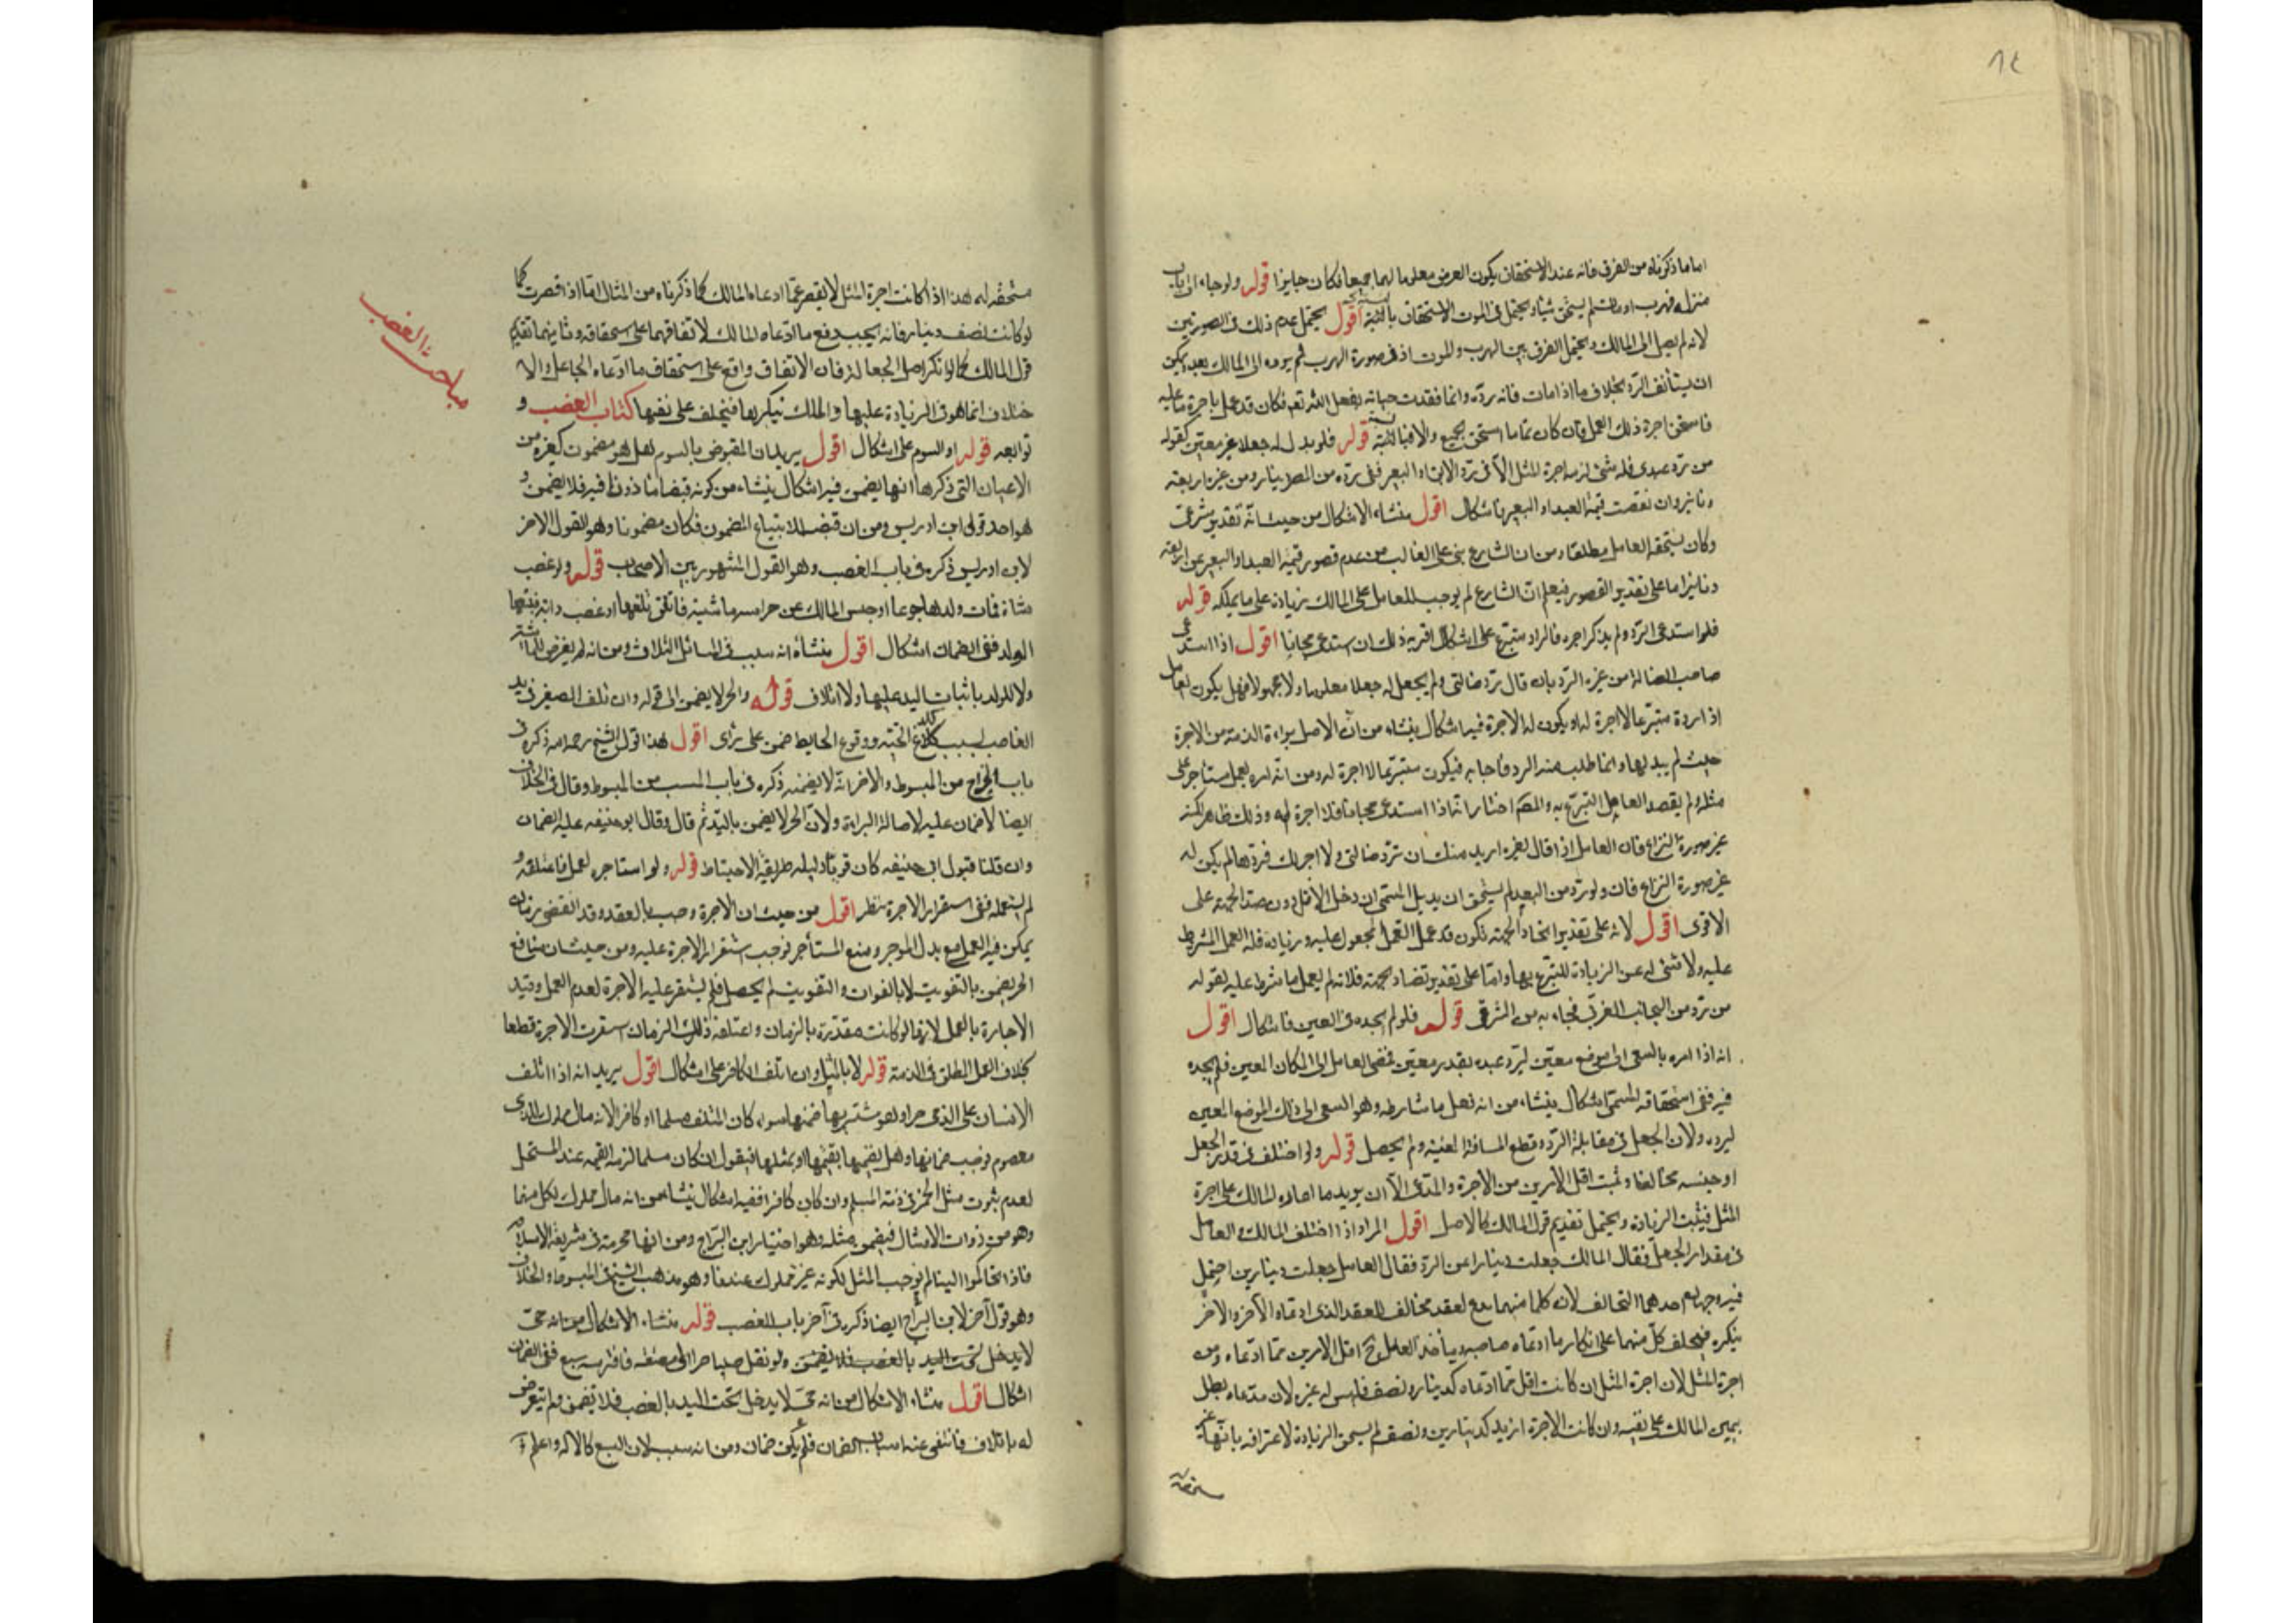 ٨٤
اما ما ذكرناه من الفرق فانه عند الاستحقاق يكون العوض معلوما لهما جميعا فكان جايزا قوله ولو جاء به الى باب
منزله فهرب او مات لم يستحق شيئا ويحتمل في الموت الاستحقاق بالنسبة اقول يحتمل عدم ذلك في الصورتين
لانه لم يصل الى المالك ويحتمل الفرق بين الهرب والموت اذ في صورة الهرب لم يرده الى المالك بعد يمكن
ان يستأنف الرد بخلاف ما اذا مات فانه برده وانما فقدت حياته بفعل الله تعالى فكان قد عمل باجرة ما عليه
فاستحق اجرة ذلك العمل فان كان تماما استحق الجميع والا فبالنسبة قوله فلو بذل له جعلا غير معين كقوله
من رد عبدى فله شئ لزمه اجرة المثل الا في رد الابق او البعير ففى رده من المصر دينار ومن غيره اربعة
دنانير وان نقصت قيمة العبد او البعير فاشكال اقول منشاء الاشكال من حيث انه تقدير شرعى
وكان يستحقه العامل مطلقا ومن ان الشارع بنى على الغالب من عدم قصور قيمة العبد او البعير عن اربعة
دنانير اما على تقدير القصور فيعلم ان الشارع لم يوجب للعامل على المالك زيادة على ما يملكه قوله
فلو استدعى الرد ولم يذكر اجرة فالراد متبرع على اشكال اقربه ذلك ان استدعى مجانا اقول اذا استدعى
صاحب الضالة من غيره الرد بان قال رد ضالتى ولم يجعل له جعلا معلوما ولا مجهولا فهل يكون العامل
اذا رده متبرعا لا اجرة له او يكون له الاجرة فيه اشكال ينشاء من ان الاصل براءة الذمة من الاجرة
حيث لم يبذلها وانما طلب منه الرد فاجابه فيكون متبرعا لا اجرة له ومن انه امره بعمل يستاجر على
مثله ولم يقصد العامل التبرع به والمصنف اختار انه اذا استدعى مجانا فلا اجرة له وذلك ظاهر لكنه
غير صورة النزاع فان العامل اذا قال لغيره اريد منك ان ترد ضالتى ولا اجر لك فردها لم يكن له
غير صورة النزاع فان ولو رد من البعيد لم يستحق ازيد بل المسمى ان دخل الاقل دون ضد الجهة على
الاقوى اقول لانه على تقدير اتحاد الجهة تكون قد عمل العمل المجعول عليه وزيادة فله العمل المشروط
عليه ولا شئ له عن الزيادة للتبرع بها واما على تقدير تضاد الجهة فلانه لم يعمل ما شرط عليه لقوله
من رد من الجانب الغربى فجاء به من الشرقى قوله فلو لم يجده فى العين فاشكال اقول
انه اذا امره بالسعى الى موضع معين ليرد عبده بقدر معين فمضى العامل الى المكان المعين فلم يجده
فيه ففى استحقاقه المسمى اشكال ينشاء من انه فعل ما شارطه وهو السعى الى ذلك الموضع المعين
ليرده ولان الجعل فى مقابلة الرد وقطع المسافة المعينة ولم يحصل قوله ولو اختلف فى قدر الجعل
او جنسه تحالفا وثبت اقل الامرين من الاجرة والمدعى الا ان يزيد ما ادعاه المالك على اجرة
المثل فيثبت الزيادة ويحتمل تقديم قول المالك كالاصل اقول المراد اذا اختلف المالك والعامل
فى مقدار الجعل فقال المالك جعلت دينارا عن الرد فقال العامل جعلت دينارين احتمل
فيه وجهان احدهما التحالف لان كلا منهما يدع لعقد مخالف للعقد الذى ادعاه الآخر والاخر
ينكره فيحلف كل منهما على انكار ما ادعاه صاحبه ويأخذ العامل ح اقل الامرين مما ادعاه ومن
اجرة المثل لان اجرة المثل ان كانت اقل مما ادعاه كدينار ونصف فليس له غيره لان مدعاه بطل
بيمين المالك على نفيه وان كانت الاجرة ازيد كدينارين ونصف لم يستحق الزيادة لاعترافه بانها غير
مستحقه
مستحقه له هذا اذا كانت اجرة المثل لا يقصر عما ادعاه المالك كما ذكرناه من المثال اما اذا قصرت كما
لو كانت نصف دينار فانه يجب دفع ما ادعاه المالك لاتفاقهما على استحقاقه وثانيهما تقديم
قول المالك كما لو انكر اصل الجعالة فان الاتفاق واقع على استحقاق ما ادعاه الجاعل والا
خلاف انما هو فى الزيادة عليها والمالك ينكرها فيحلف على نفيها كتاب الغصب و
مباحث الغصب
توابعه قوله او السوم على اشكال اقول يريد ان المقبوض بالسوم هل هو مضمون كغيره من
الاعيان التى ذكرها انها يضمن فيه اشكال ينشاء من كونه قبضا ماذونا فيه فلا يضمن و
هو احد قولى ابن ادريس ومن ان قبضه للابتياع المضمون فكان مضمونا وهو القول الاخر
لابن ادريس ذكره فى باب الغصب وهو القول المشهور بين الاصحاب قوله ولو غصب
شاة فمات ولدها جوعا او حبس المالك عن حراسة ماشيته فاتفق تلفها او غصب دابة فتبعها
الولد ففى الضمان اشكال اقول منشأه انه سبب فى المسائل الثلاث ومن انه لم يغرض للماشية
ولا للولد باثبات اليد عليها ولا اتلاف قوله والحر لا يضمن الى قوله وان تلف الصغير فى يد
الغاصب بسبب كلدغ الحية ووقوع الحايط ضمن على رأى اقول هذا قول الشيخ رحمه الله ذكره فى
باب الجراح من المبسوط والاخر انه لا يضمنه ذكره فى باب الغصب من المبسوط وقال فى الخلاف
ايضا لا ضمان عليه لاصالة البراءة ولان الحر لا يضمن باليد ثم قال وقال ابو حنيفه عليه الضمان
وان قلنا قبول ابى حنيفه كان قويا ودليله طريقة الاحتياط قوله ولو استاجره لعمل فاعتقله و
لم يستعمله ففى استقرار الاجرة نظر اقول من حيث ان الاجرة وجب بالعقد وقد انقضى زمان
يمكن فيه العمل مع بدل الموجر ومنع المستأجر فوجب استقرار الاجرة عليه ومن حيث ان منافع
الحر يضمن بالتفويت لا بالفوات والتفويت لم يحصل فلم يستقر عليه الاجرة لعدم العمل وقيد
الاجارة بالعمل لانها لو كانت مقدرة بالزمان واعتقله ذلك الزمان استقرت الاجرة قطعا
بخلاف العمل المطلق فى الذمة قوله لا بالمثل وان اتلف الكافر على اشكال اقول يريد انه اذا اتلف
الانسان على الذمى خمرا وهو مستتر بها ضمنها سواء كان المتلف مسلما او كافرا لانه مال مملوك للذمى
معصوم فوجب ضمانها وهل يضمنها بقيمتها او بمثلها فيقول ان كان مسلما لزمه القيمه عند المستحل
لعدم ثبوت مثل الخمر فى ذمة المسلم وان كان كافرا ففيه اشكال ينشا من انه مال مملوك لكل منهما
وهو من ذوات الامثال فيضمن بمثله وهو اختيار ابن البراج ومن انها محرمة فى شريعة الاسلام
فاذا تحاكموا الينا لم يوجب المثل لكونه غير مملوك عندنا وهو مذهب الشيخ فى المبسوط والخلاف
وهو قول آخر لابن البراج ايضا ذكره فى آخر باب الغصب قوله منشاء الاشكال من انه حر
لا يدخل تحت اليد بالغصب فلا يضمن ولو نقل صبيا حرا الى مضيعة فافترسه سبع ففى الضمان
اشكال اقول منشاء الاشكال من انه حر لا يدخل تحت اليد بالغصب فلا يضمن ولم يتعرض
له باتلاف فانتفى عنه اسباب الضمان فلم يكن ضمان ومن انه سبب لان السبع كالالة واعلم